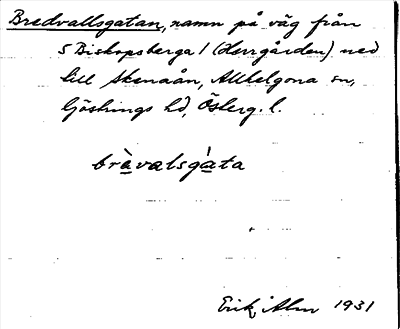 Bredvallsgatan, namn på väg från
S Biskopsberga 1 (Herrgården) ned
till Skenaån, Allhelgona sn,
Göstrings hd, Österg. l.
bràvalsgàta
Erik Alm 1931